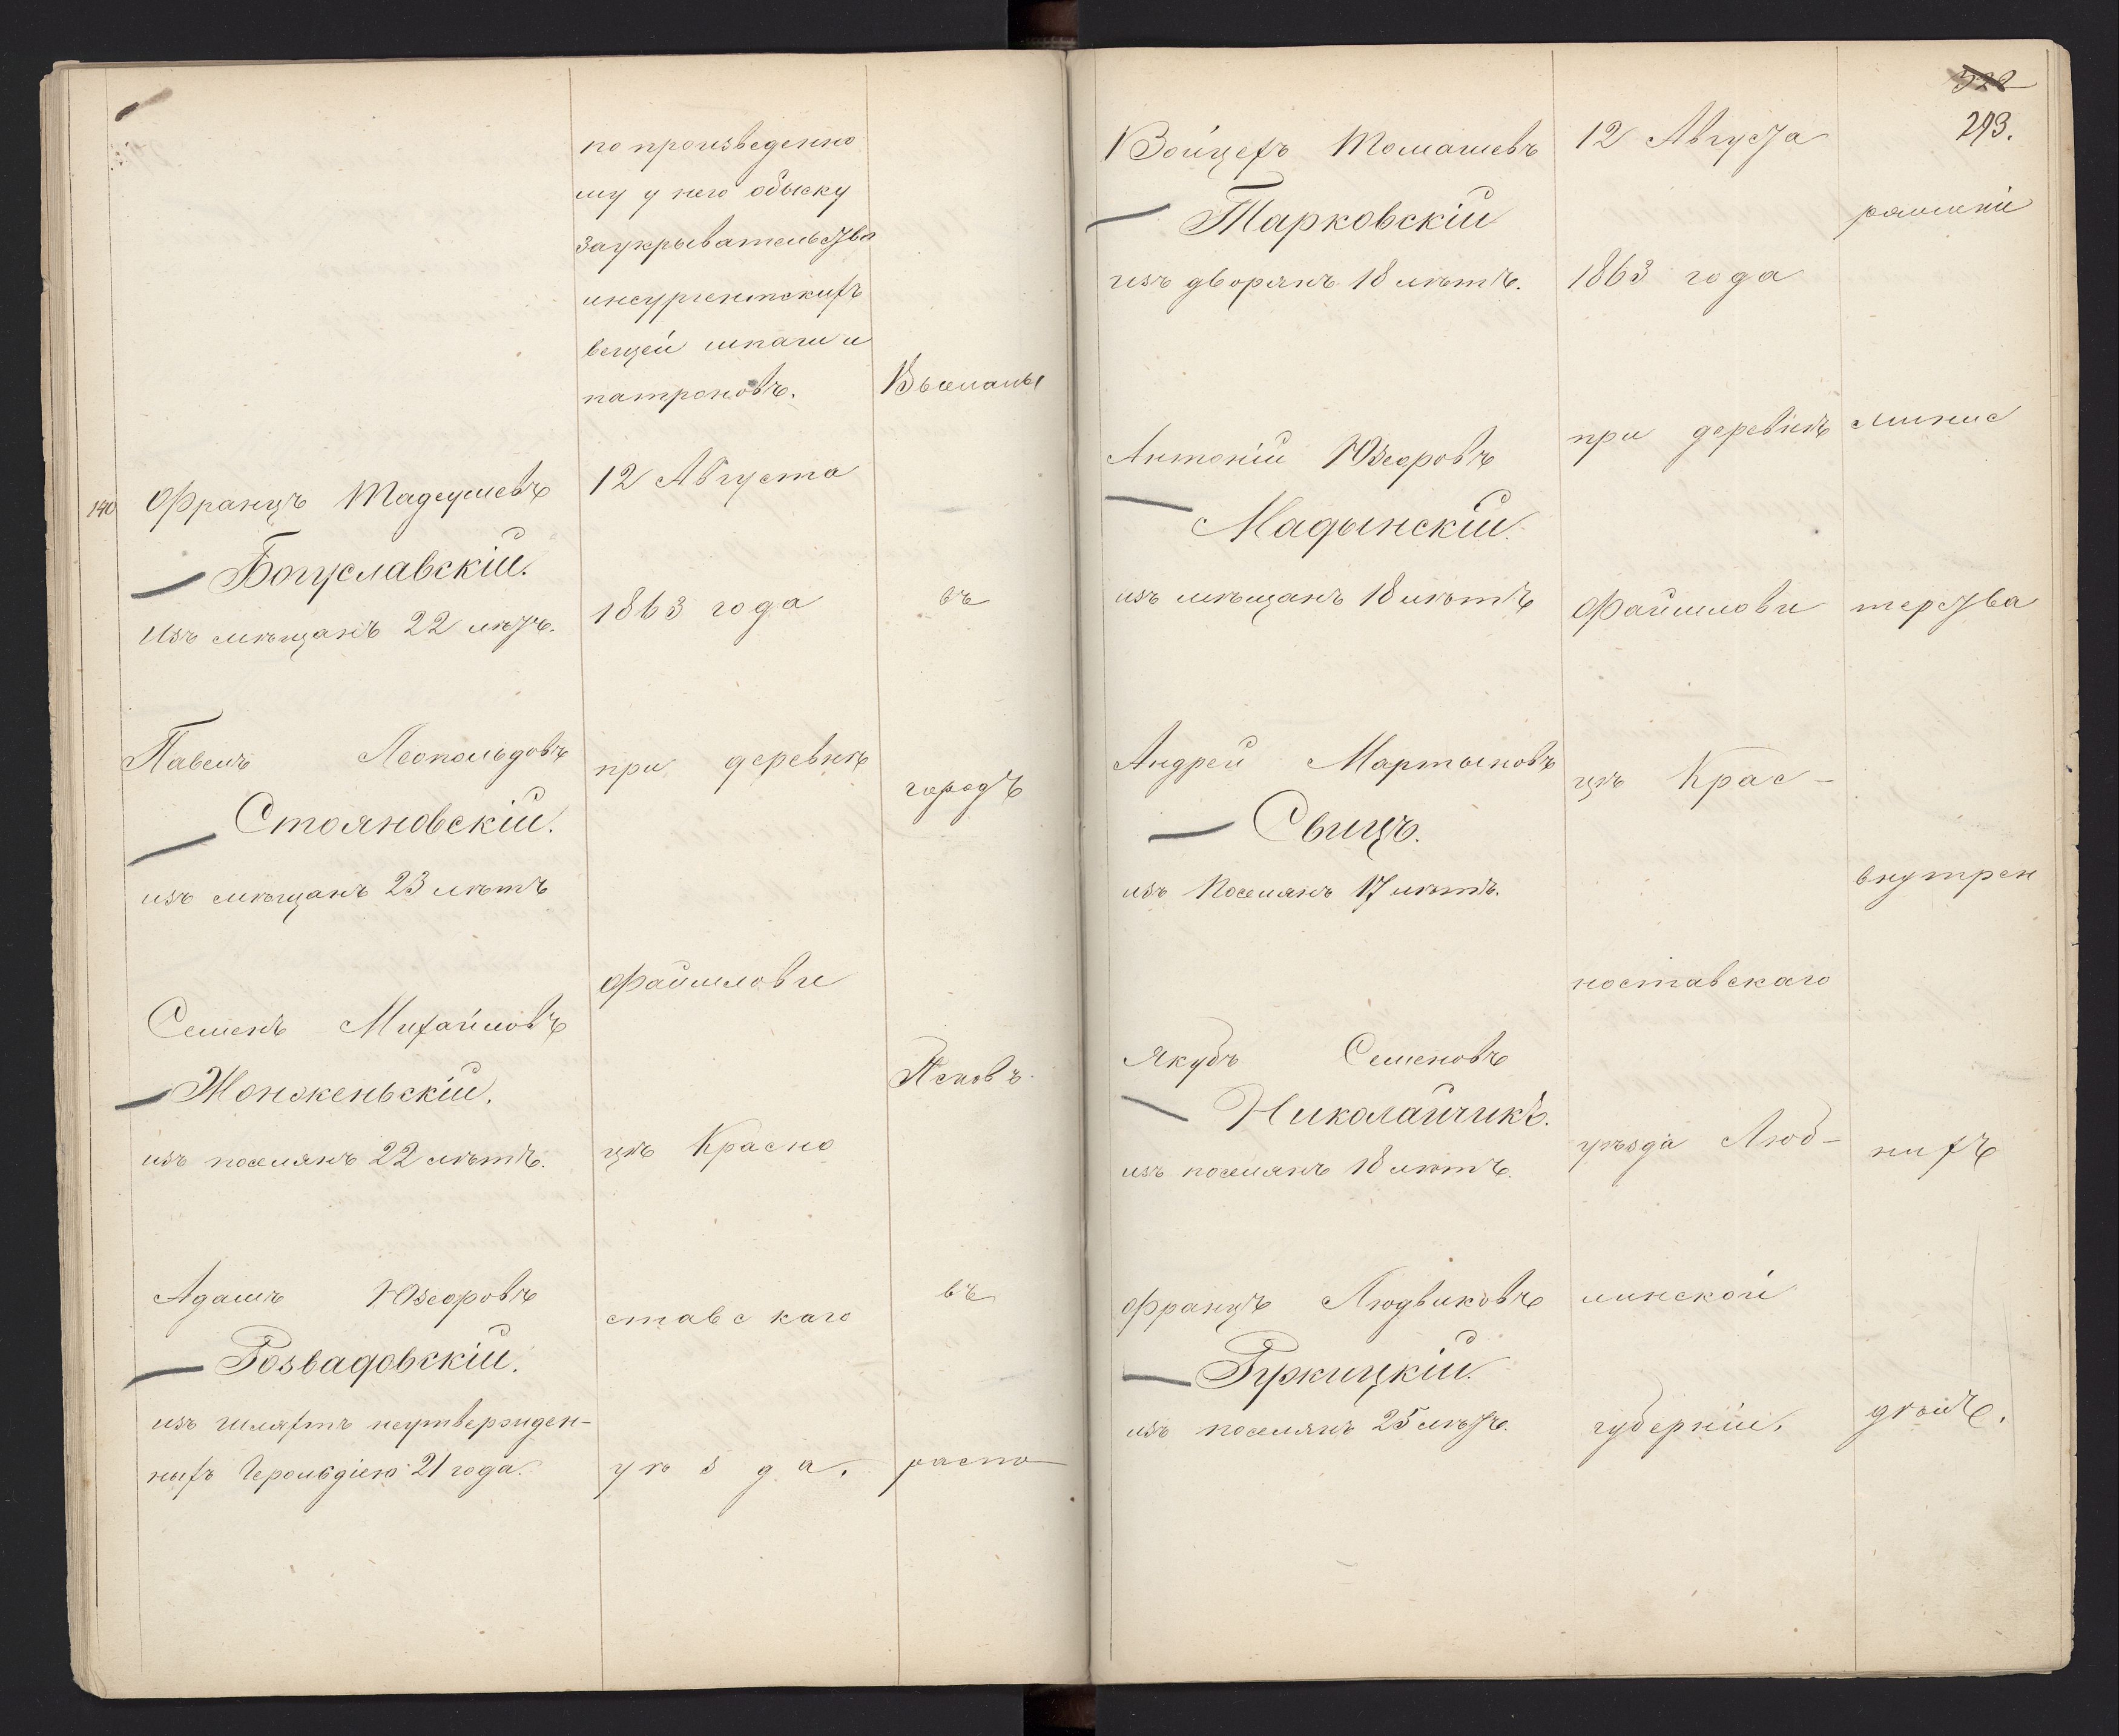 по произведенно
му у него обыску
за укрывательства
инсургентскихъ
вещей шпаги и
патроновъ.
Высланы
140
Францъ Тадеушевъ
Богуславскій.
изъ мѣщанъ 22 лѣтъ.
12 Августа
1863 года
въ
Павелъ Леопольдовъ
Стояновскій.
изъ мѣщанъ 23 лѣтъ
при деревнѣ
городъ
Семенъ Михайловъ
Жонженьскій.
изъ поселянъ 22 лѣтъ.
Файшлови
цѣ Красно
Псковъ
Адамъ Юзефовъ
Розвадовскій.
изъ шляхтъ неутвержден-
ныхъ Герольдіею 21 года.
ставскаго
уѣзда.
въ
распо
322
293.
Войцехъ Томашевъ
Тарковскій
изъ дворянъ 18 лѣтъ.
12 Августа
1863 года
ряженіи
Антоній Юзефовъ
Мадынскій.
изъ мѣщанъ 18 лѣтъ
при деревнѣ
Файшлови
минис
терства
Андрей Мартыновъ
Свицъ.
изъ поселянъ 17 лѣтъ.
цѣ Крас-
внутрен
Якубъ Семеновъ
Николайчикъ.
изъ поселянъ 18 лѣтъ.
ноставскаго
уѣзда Люб-
нихъ
Францъ Людвиковъ
изъ поселянъ 25 лѣтъ.
линской
губерніи.
дѣлъ.